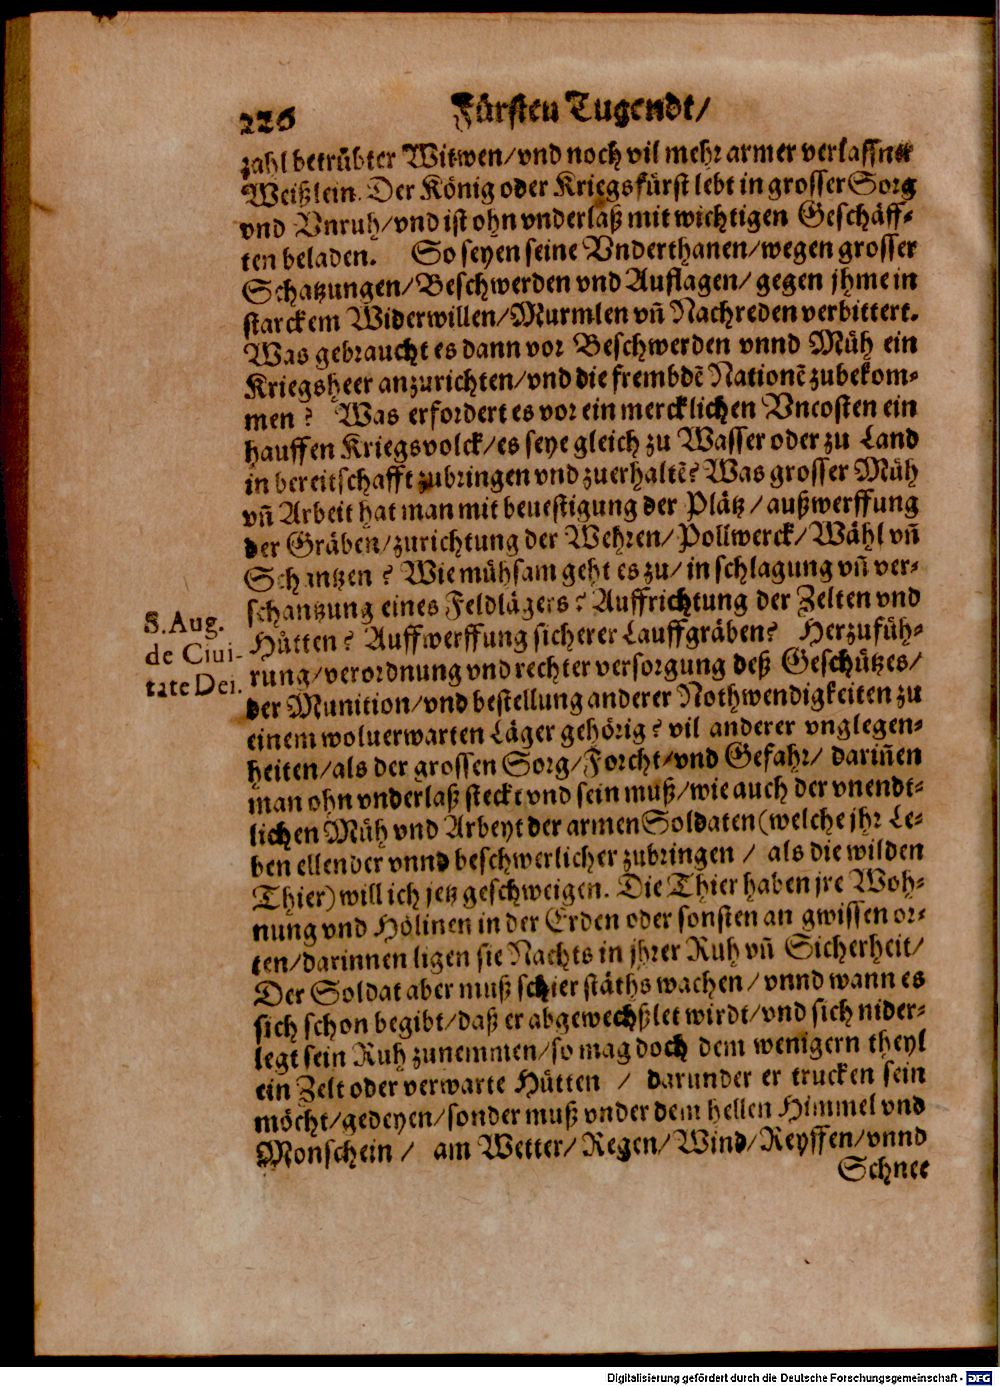 226
Fürsten Tugendt/
zahl betrübter Witwen/vnd noch vil mehr armer verlassner
Weißlein. Der König oder Kriegsfürst lebt in grosser Sorg
vnd Vnruh/vnd ist ohn vnderlaß mit wichtigen Geschäff-
ten beladen. So seyen seine Vnderthanen/wegen grosser
Schatzungen/Beschwerden vnd Auflagen/ gegen jhme in
starckem Widerwillen/Murmlen vñ Nachreden verbittert.
Was gebraucht es dann vor Beschwerden vnnd Müh ein
Kriegsheer anzurichten/vnd die frembdẽ Nationẽ zubekom-
men? Was erfordert es vor ein mercklichen Vncosten ein
hauffen Kriegsvolck/es seye gleich zu Wasser oder zu Land
in bereitschafft zubringen vnd zuerhaltẽ? Was grosser Müh
vñ Arbeit hat man mit beuestigung der Plätz/außwerffung
der Gräben/zurichtung der Wehren/Pollwerck/Wähl vñ
Schantzen? Wie mühsam geht es zu/in schlagung vñ ver-
schantzung eines Feldlägers? Auffrichtung der Zelten vnd
Hütten? Auffwerffung sicherer Lauffgräben? Herzufüh-
rung/verordnung vnd rechter versorgung deß Geschützes/
der Munition/vnd bestellung anderer Nothwendigkeiten zu
einem woluerwarten Läger gehörig? vil anderer vnglegen-
heiten/als der grossen Sorg/Forcht/vnd Gefahr/ dariñen
man ohn vnderlaß steckt vnd sein muß/wie auch der vnendt-
lichen Müh vnd Arbeyt der armen Soldaten (welche jhr Le-
ben ellender vnnd beschwerlicher zubringen / als die wilden
Thier) will ich jetz geschweigen. Die Thier haben jre Woh-
nung vnd Hölinen in der Erden oder sonsten an gwissen or-
ten/darinnen ligen sie Nachts in jhrer Ruh vñ Sicherheit/
Der Soldat aber muß schier stäths wachen/ vnnd wann es
sich schon begibt/daß er abgewechßlet wirdt/vnd sich nider-
legt sein Ruh zunemmen/so mag doch dem wenigern theyl
ein Zelt oder verwarte Hütten / darunder er trucken sein
möcht/gedeyen/sonder muß vnder dem hellen Himmel vnd
Monschein / am Wetter/Regen/Wind/Reyffen/vnnd
Schnee
S. Aug.
de Ciui-
tate Dei.
Digitalisierung gefördert durch die Deutsche Forschungsgemeinschaft - DFG